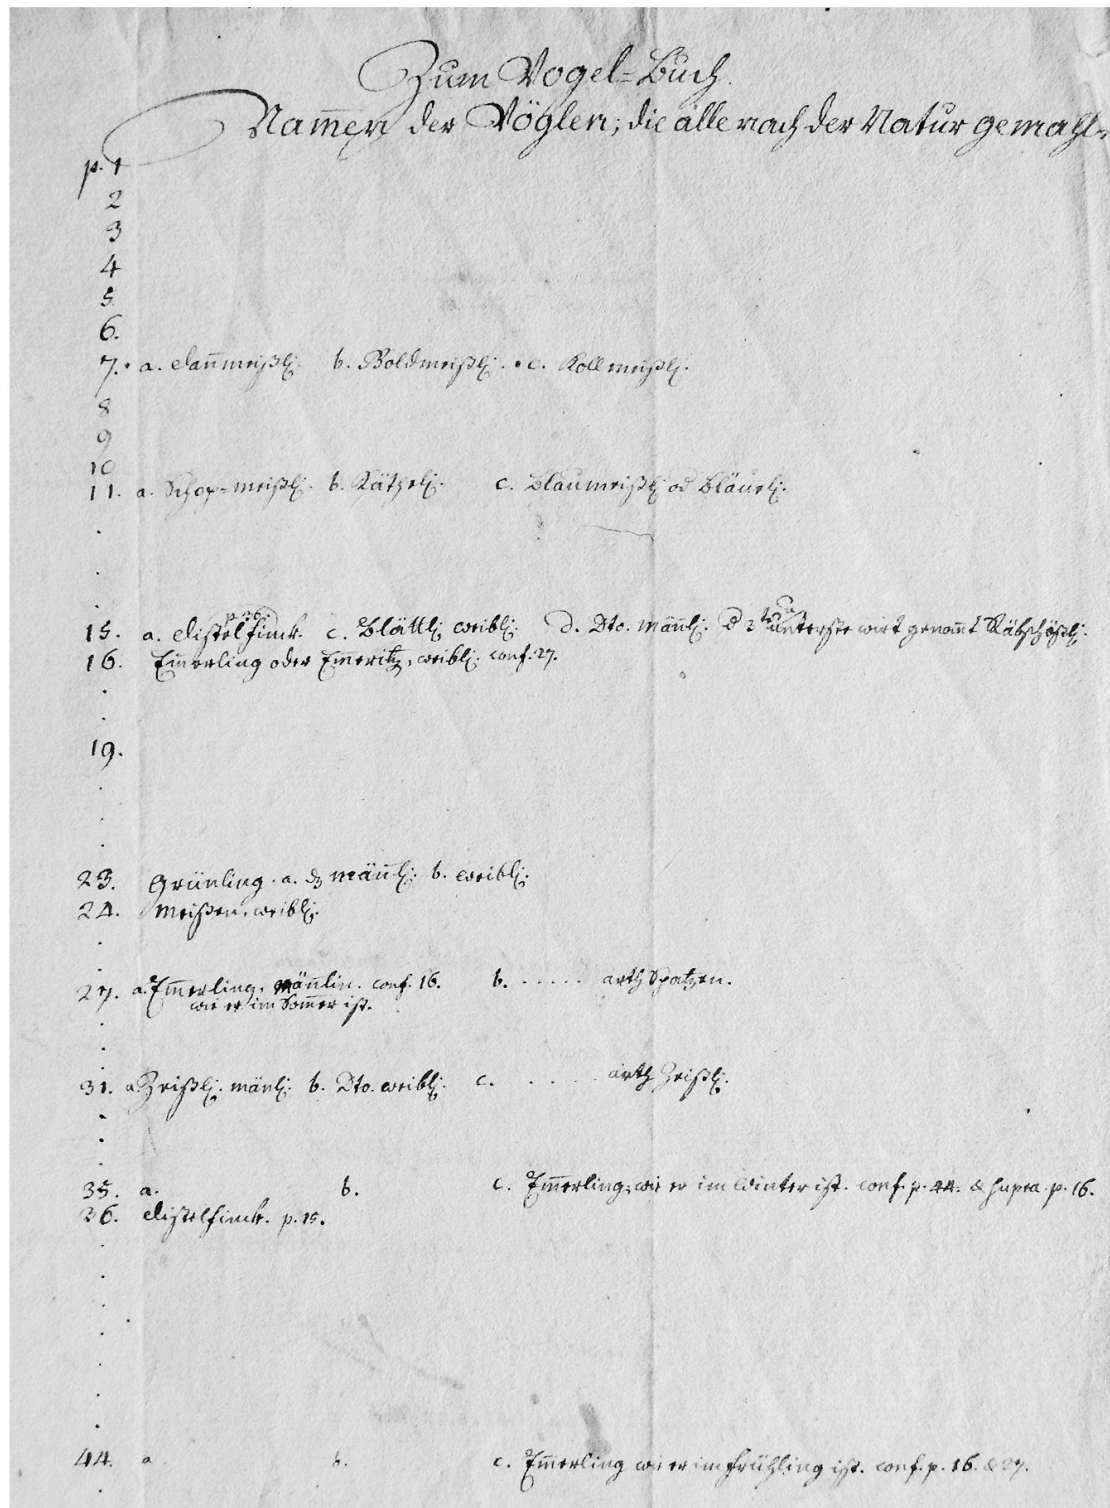 Zum Vogel-Buch.
Nam̄en der Vöglen; die alle nach der Natur gemahl-
p. 1
2
3
4
5.
6.
7. a. Tan̄meißlj. b. Goldmeißlj. c. Kollmeißlj.
8
9
10
11. a. Schop-meißlj. b. Räthelj. c. Blaumeißlj od Bläuelj.
p. 36.
15. a. Distelfinck. c. Blättlj weiblj. d. Dto. män̄lj. unterste wirt genan̄t
16. Em̄erling oder Em̄eritz, weiblj. conf. 27.
19.
23. Grünling. a. dz män̄lj. b. weiblj.
24. Meißen, weiblj.
27. a. Em̄erling, män̄lin. conf. 16. b. . . . . . arth Spatzen.
wie er im Som̄er ist.
31. a. Zeißlj. mänlj. b. Dto. weiblj. c. . . . . arth Zeißlj.
35. a. b. c. Em̄erling, wie er im Winter ist. conf. p. 44. & supra p. 16.
36. Distelfinck. p. 15.
44. a. b. c. Em̄erling wie er im Frühling ist. conf. p. 16. & 27.